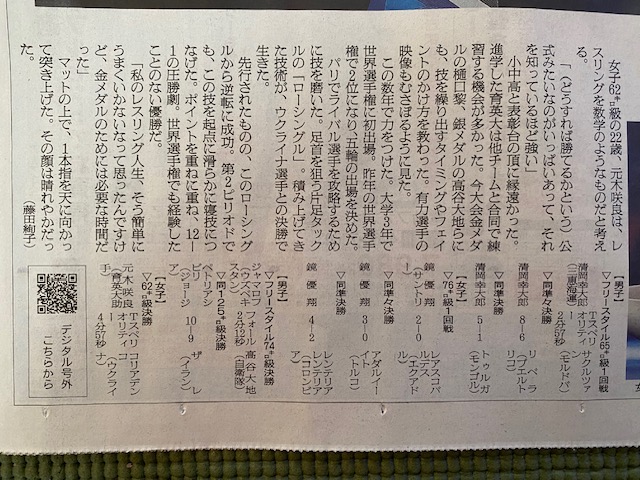 女子62㌔級の22歳、元木咲良は、レ
スリングを数学のようなものだと考え
る。
「(どうすれば勝てるかという)公
式みたいなのがいっぱいあって、それ
を知っているほど強い」
小中高と表彰台の頂に縁遠かった。
進学した育英大は他チームと合同で練
習する機会が多かった。今大会金メダ
ルの樋口黎、銀メダルの高谷大地らに
も、技を繰り出すタイミングやフェイ
ントのかけ方を教わった。有力選手の
映像もむさぼるように見た。
この数年で力をつけた。大学3年で
世界選手権に初出場。昨年の世界選手
権で2位になり五輪の出場を決めた。
パリでライバル選手を攻略するため
に技を磨いた。足首を狙う片足タック
ルの「ローシングル」。積み上げてき
た技術が、ウクライナ選手との決勝で
生きた。
先行されたものの、このローシング
ルから逆転に成功。第2ピリオドで
も、この技を起点に滑らかに寝技につ
なげた。ポイントを重ねに重ね、12―
1の圧勝劇。世界選手権でも経験した
ことのない優勝だ。
「私のレスリング人生、そう簡単に
うまくいかないなって思ったんですけ
ど、金メダルのためには必要な時間だ
った」
マットの上で、1本指を天に向かっ
て突き上げた。その顔は晴れやかだっ
た。 (藤田絢子)
【男子】
▽フリースタイル65㌔級1回戦
清岡幸太郎 Tスペリ サクルツァ
(三恵海運) オリティ (モルドバ)
2分57秒
▽同準々決勝
清岡幸太郎 8―6 リベラ
(プエルト
リコ)
▽同準決勝
清岡幸太郎 5―1 トゥルガ
(モンゴル)
【女子】
▽76㌔級1回戦
鏡優翔 2―0 レアスコバ
(サントリ ルデス
ー) (エクアド
ル)
▽同準々決勝
鏡優翔 3―0 アダルイー
イト
(トルコ)
▽同準決勝
鏡優翔 4―2 レンテリア
レンテリア
(コロンビ
ア)
【男子】
▽フリースタイル74㌔級決勝
ジャマロフ フォール 高谷大地
(ウズベキ 2分12秒 (自衛隊)
スタン)
▽同125㌔級決勝
ペトリアシ 10―9 ザレ
ビリ (イラン)
(ジョージ
ア)
【女子】
▽62㌔級決勝
元木咲良 Tスペリ コリアデン
(育英大助 オリティ コ
手) 4分57秒 (ウクライ
ナ)
デジタル号外
こちらから